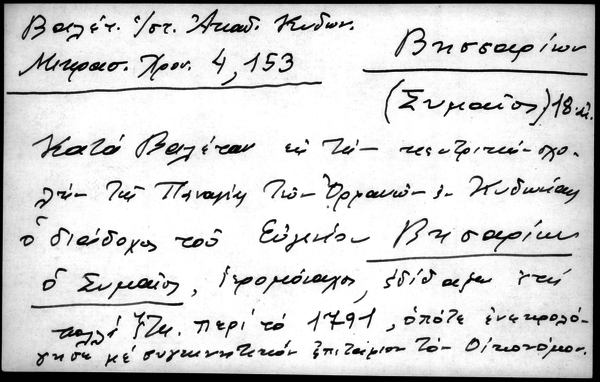 Βαλέτ. ἱστ. Ἀκαδ. Κυδων.
Μικρασ. Χρον. 4, 153
Βησσαρίων
(Συμαῖος) 18 αἰ.
Κατά Βαλέταν εἰς τήν κεντρικήν σχο-
λήν τῆς Παναγίας τῶν Ὀρφανῶν ἐν Κυδωνίαις
ὁ διάδοχος τοῦ Εὐγενίου Βησσαρίων
ὁ Συμαῖος, ἱερομόναχος, ἐδίδαξεν ἐπί
πολλά ἔτη. περί τό 1791, ὁπότε ἐνεκρολό-
γησε μέ συγκινητικόν ἐπιτάφιον τόν Οἰκονόμον.